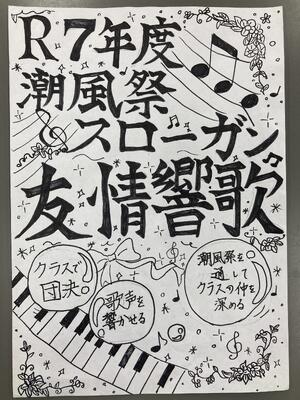 R7年度
潮風祭
スローガン
友情響歌
クラスで
団決!
歌声を
響かせる
潮風祭を
通して
クラスの仲を
深める